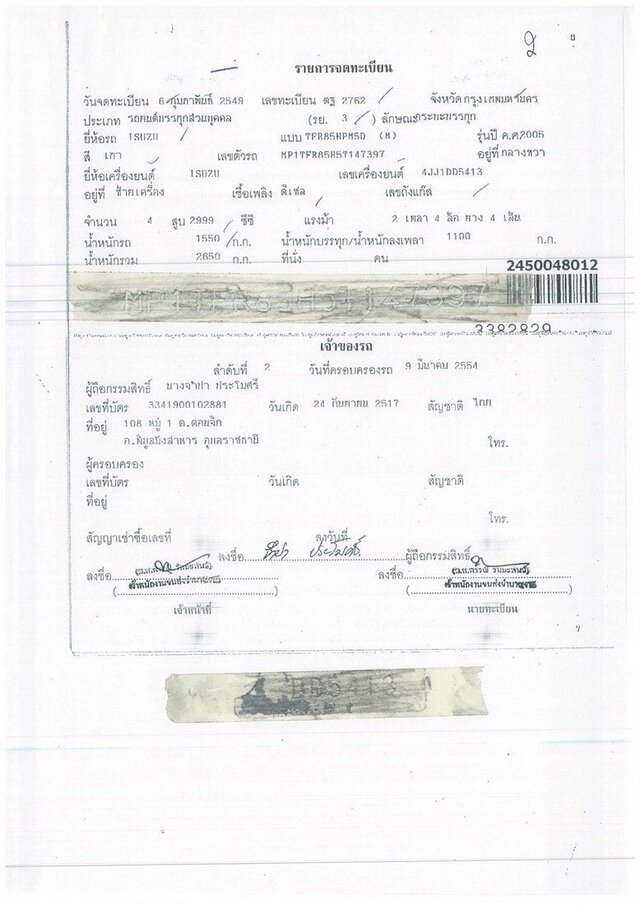 รายการจดทะเบียน
วันจดทะเบียน 6 กุมภาพันธ์ 2549 เลขทะเบียน ตฐ 2762 จังหวัด กรุงเทพมหานคร
ประเภท รถยนต์บรรทุกส่วนบุคคล (รย. 3 ) ลักษณะ กระบะบรรทุก
ยี่ห้อรถ ISUZU แบบ TFR85HPM5D (M) รุ่นปี ค.ศ2005
สี เทา เลขตัวรถ MP1TFR85H5T147397 อยู่ที่ กลางขวา
ยี่ห้อเครื่องยนต์ ISUZU เลขเครื่องยนต์ 4JJ1DD5413
อยู่ที่ ซ้ายเครื่อง เชื้อเพลิง ดีเซล เลขถังแก๊ส
จำนวน 4 สูบ 2999 ซีซี แรงม้า 2 เพลา 4 ล้อ ยาง 4 เส้น
น้ำหนักรถ 1550 ก.ก. น้ำหนักบรรทุก/น้ำหนักลงเพลา 1100 ก.ก.
น้ำหนักรวม 2650 ก.ก. ที่นั่ง คน
2450048012
MP1TFR85H5T147397
3382829
เจ้าของรถ
ลำดับที่ 2 วันที่ครอบครองรถ 9 มีนาคม 2554
ผู้ถือกรรมสิทธิ์
เลขที่บัตร 3341900102881 วันเกิด 24 กันยายน 2517 สัญชาติ ไทย
ที่อยู่ 108 หมู่ 1 ต.ดอนจิก
อ.พิบูลมังสาหาร อุบลราชธานี
โทร.
ผู้ครอบครอง
เลขที่บัตร วันเกิด สัญชาติ
ที่อยู่
โทร.
สัญญาเช่าซื้อเลขที่ ลงวันที่
ลงชื่อ ผู้ถือกรรมสิทธิ์
ลงชื่อ ลงชื่อ
เจ้าหน้าที่ นายทะเบียน
7
DD5413